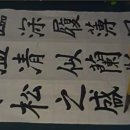 臨深履薄
溫清似蘭
松之盛